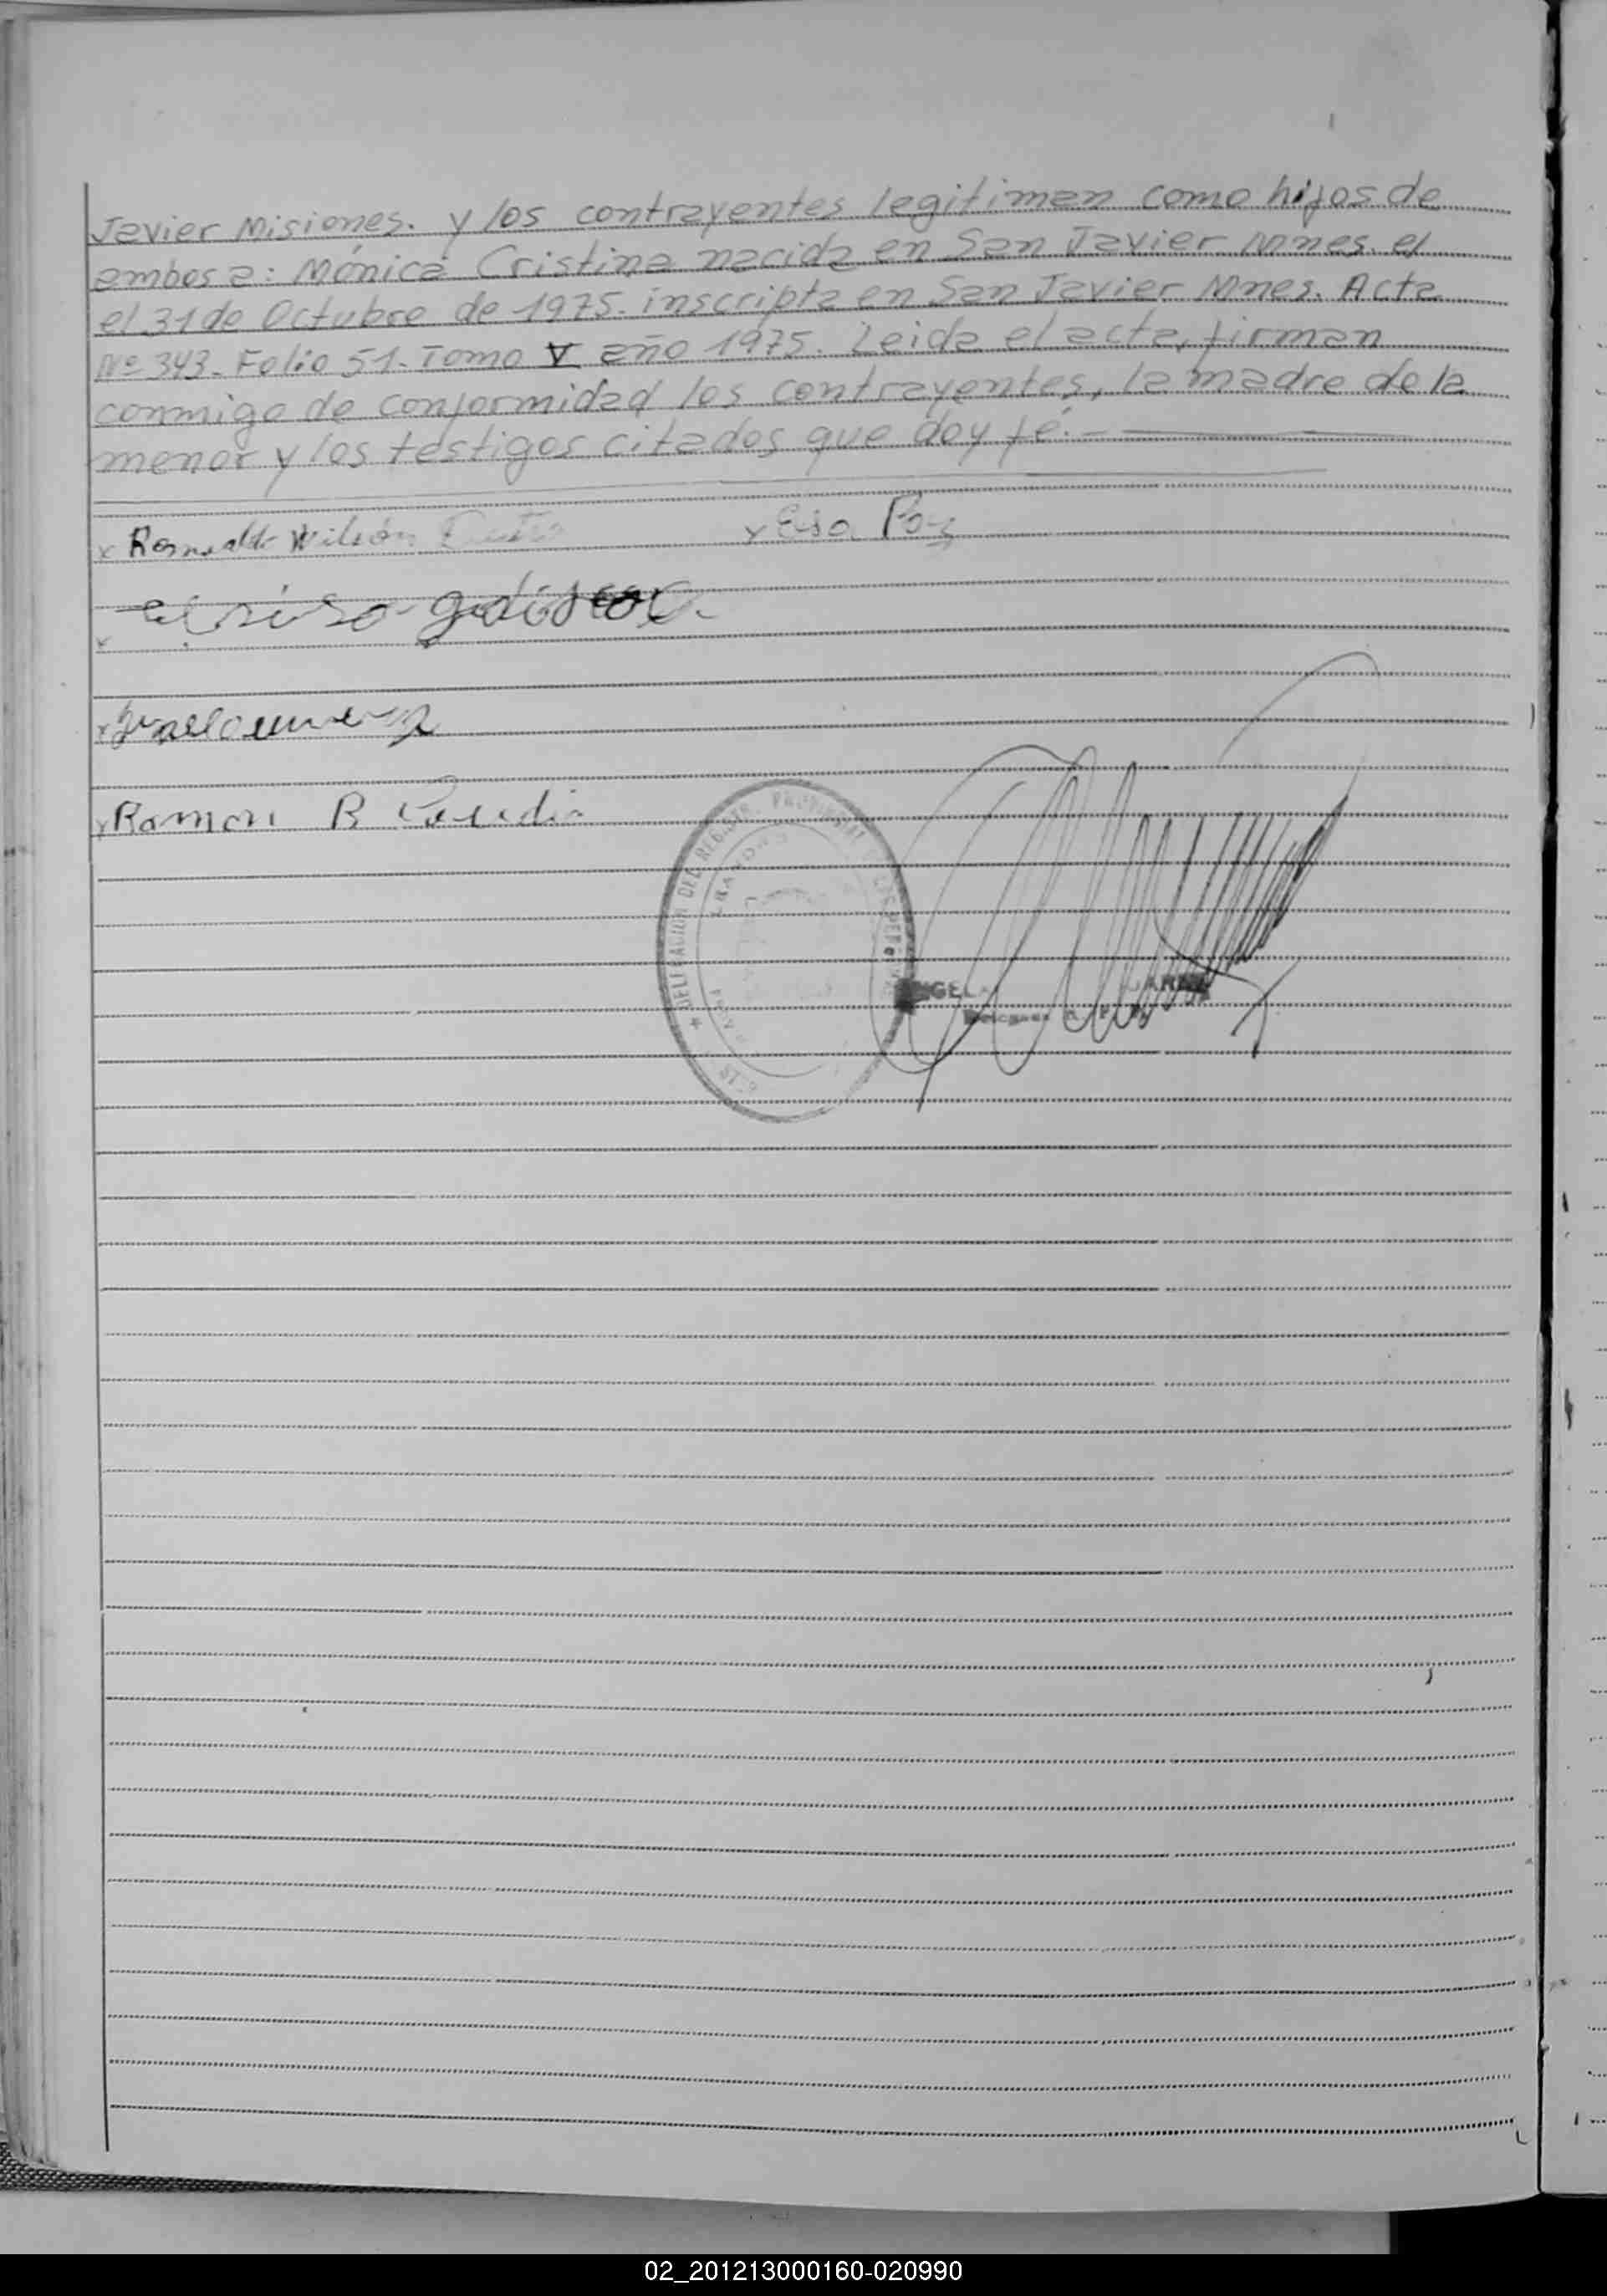 Javier Misiones. y los contrayentes legitiman como hijos de
ambos a: Mónica Cristina nacida en San Javier Mnes. el
el 31 de Octubre de 1975. inscripta en San Javier Mnes. Acta
Nº 343. Folio 51. Tomo V año 1975. Leida el acta, firman
conmigo de conformidad los contrayentes, la madre de la
menor y los testigos citados que doy fé.-
x Romualdo Wilson
x Elsa
x
x
x Ramon R
DELEGACION DEL REGISTR. PROVINCIAL
ANGELA
02_201213000160-020990